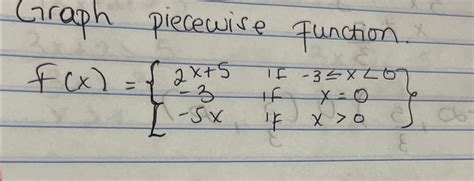 Graph piecewise function.
f(x) = { 2x+5 if -3≤x<0 }
-3 if x=0
-5x if x>0